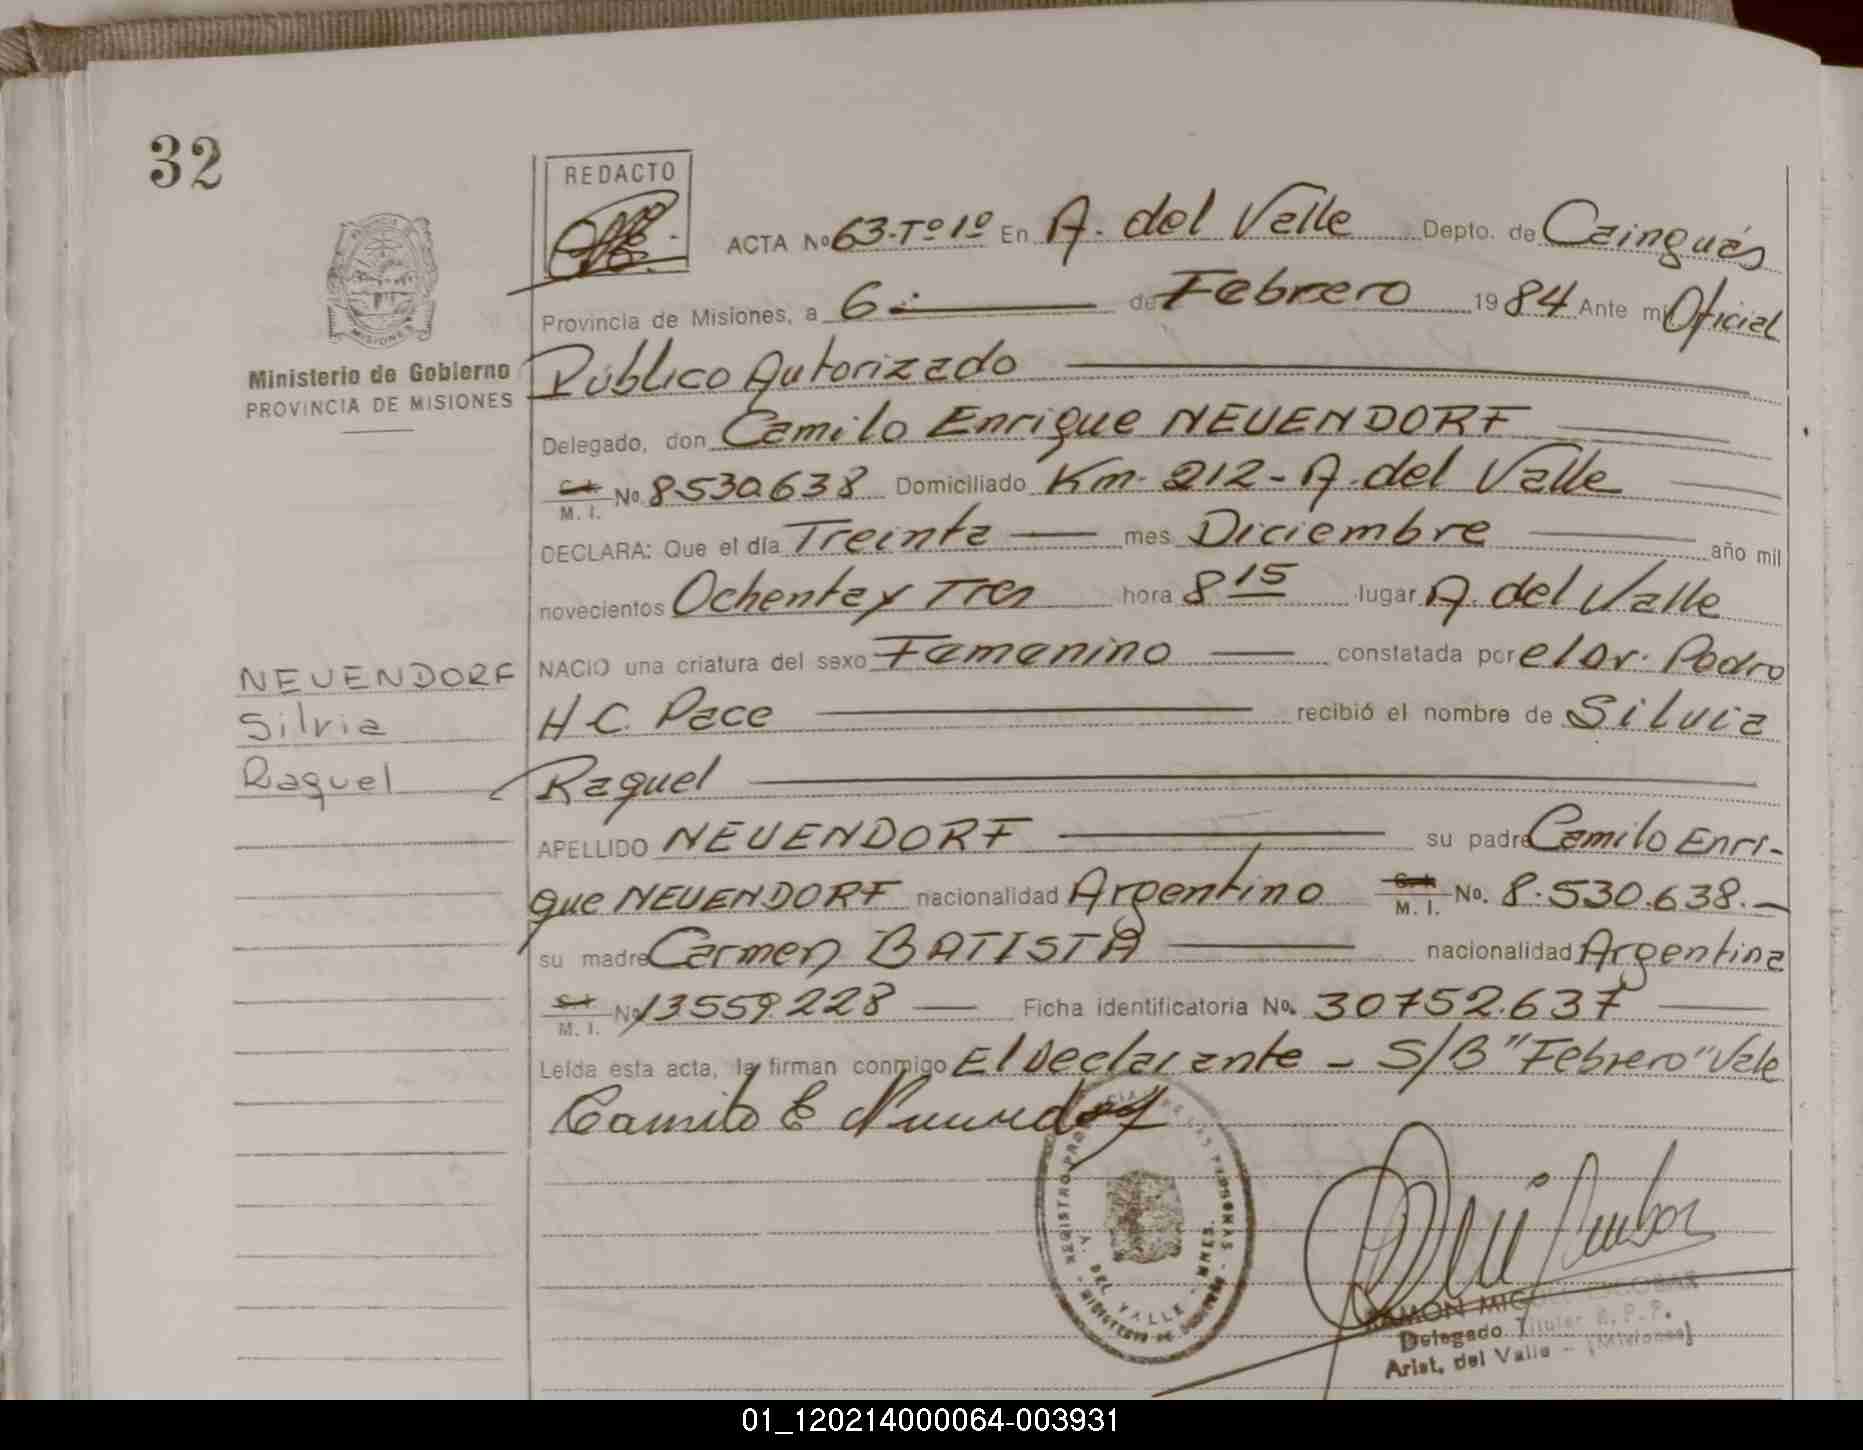 32
REDACTO
ACTA Nº 63-Tº 1º En A. del Valle Depto. de Cainguás
Provincia de Misiones, a 6 de Febrero 1984 Ante mi Oficial
Ministerio de Gobierno
PROVINCIA DE MISIONES
MISIONES
Público Autorizado
Delegado, don Camilo Enrique NEUENDORF
C.I. M. I. No. 8530638 Domiciliado Km. 212 - A. del Valle
DECLARA: Que el día Treinta mes Diciembre año mil
novecientos Ochenta y Tres hora 8 15 lugar A. del Valle
NACIO una criatura del sexo Femenino constatada por el Dr. Pedro
H. C. Pace recibió el nombre de Silvia
Raquel
NEUENDORF
Silvia
Raquel
APELLIDO NEUENDORF su padre Camilo Enri-
que NEUENDORF nacionalidad Argentino C.I. M. I. No. 8.530.638.-
su madre Carmen BATISTA nacionalidad Argentina
C.I. M. I. No 13559.228 Ficha identificatoria No. 30752.637
Leída esta acta, la firman conmigo El Declarante - S/B "Febrero" Vale
Camilo E Neuendorf
REGISTRO PROVINCIAL DE LAS PERSONAS
A. DEL VALLE - MNES.
MINISTERIO DE GOBIERNO
RAMON MIGUEL ESCOBAR
Delegado Titular R. P. P.
Arist. del Valle - (Misiones)
01_120214000064-003931